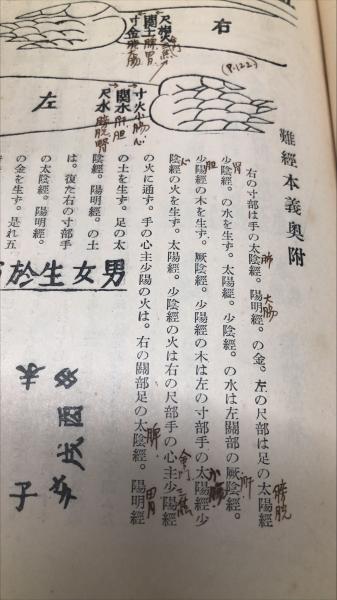 右
尺相火命三焦
関土脾胃
寸金肺大腸
(P.122)
左
寸火小腸心
関木肝胆
尺水膀胱腎
難經本義奥附
右の寸部は手の太陰經。陽明經。の金。左の尺部は足の太陽經
肺
大腸
膀胱
少陰經。の水を生す。太陽經。少陰經。の水は左關部の厥陰經。
腎
肝
少陽經の木を生す。厥陰經。少陽經の木は左の寸部手の太陽經少
胆
小腸
陰經の火を生す。太陽經。少陰經の火は右の尺部手の心主少陽經
心
命門
三焦
の火に通す。手の心主少陽の火は。右の關部足の太陰經。陽明經
脾
胃
の土を生す。足の太
陰經。陽明經。の土
は。復た右の寸部手
の太陰經。陽明經。
の金を生す。是れ五
男女生於
子